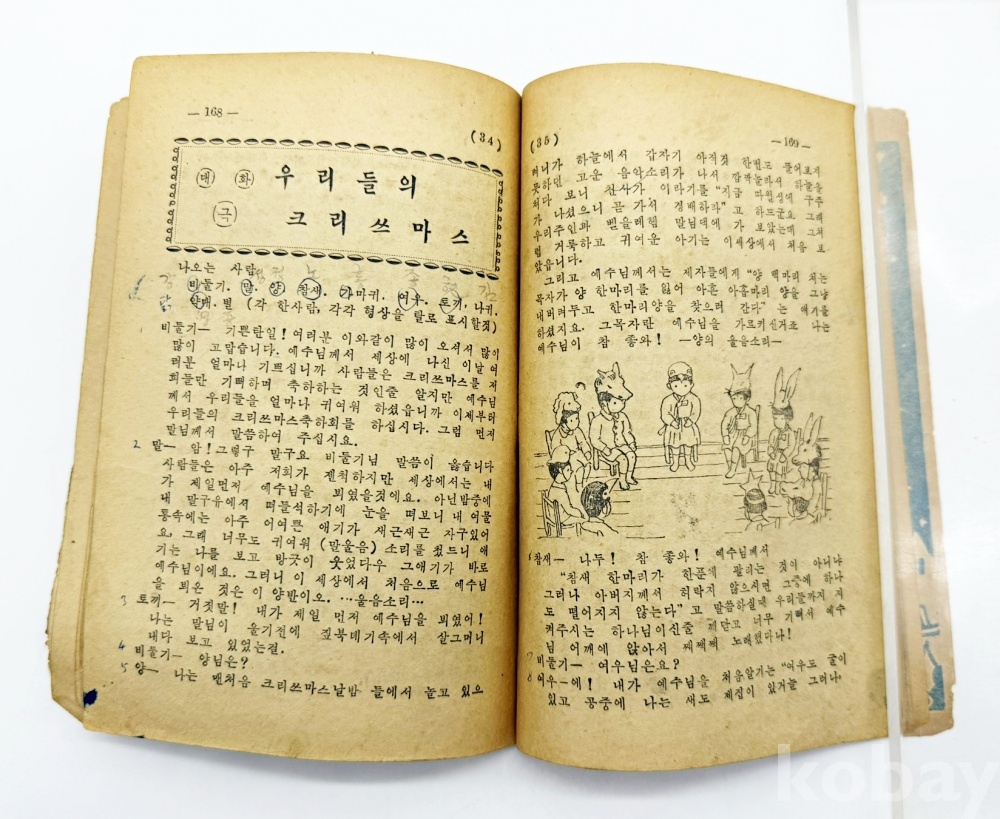 — 168 —
(34)
대 화 극
우리들의
크리쓰마스
나오는 사람
비둘기. 말. 양. 참새. 까마귀. 여우. 토끼. 나귀.
낙태. 벌 (각 한사람, 각각 형상을 탈로 표시할것)
비둘기— 기쁜탄일! 여러분 이와같이 많이 오셔서 많이
많이 고맙습니다. 예수님께서 세상에 나신 이날 여
러분 얼마나 기쁘십니까 사람들은 크리쓰마스를 저
희들만 기뻐하며 축하하는 것인줄 알지만 예수님
께서 우리들을 얼마나 귀여워 하셨읍니까 이제부터
우리들의 크리쓰마스축하회를 하십시다. 그럼 먼저
말님께서 말씀하여 주십시요.
2 말— 암! 그렇구 말구요 비둘기님 말씀이 옳습니다
사람들은 아주 저희가 젠척하지만 세상에서는 내
가 제일먼저 예수님을 뵈였을것에요. 아닌밤중에
내 말구유에서 떠들석하기에 눈을 떠보니 내 여물
통속에는 아주 어여쁜 애기가 새근새근 자구있어
요. 그래 너무도 귀여워 (말울음) 소리를 쳤드니 애
기는 나를 보고 방긋이 웃었다우 그애기가 바로
예수님이에요. 그러니 이 세상에서 처음으로 예수님
을 뵈온 것은 이 양반이오. …울음소리…
3 토끼— 거짓말! 내가 제일 먼저 예수님을 뵈였어!
나는 말님이 울기전에 짚북데기속에서 살그머니
내다 보고 있었는걸.
4 비둘기— 양님은?
5 양— 나는 맨처음 크리쓰마스날밤 들에서 놀고 있으
(35)
—169—
려니가 하늘에서 갑자기 아직껏 한번도 들어보지
못하던 고운 음악소리가 나서 깜짝놀라서 하늘을
쳐다 보니 천사가 이라기를 "지금 따윗성에 구주
가 나셨으니 곧 가서 경배하라" 고 하드군요 그래
우리주인과 벧을레헴 말님댁에 가 보았는데 그처
럼 거룩하고 귀여운 아기는 이세상에서 처음 보
았읍니다.
그리고 예수님께서는 제자들에게 "양 백마리 치는
목자가 양 한마리를 잃어 아흔 아홉마리 양을 그냥
내버려두고 한마리양을 찾으러 갔다" 는 얘기를
하셨지요. 그목자란 예수님을 가르키신거죠 나는
예수님이 참 좋와! —양의 울음소리—
6 참새— 나두! 참 좋와! 예수님께서
"참새 한마리가 한푼에 팔리는 것이 아니냐
그러나 아버지께서 허락지 않으시면 그중에 하나
도 떨어지지 않는다" 고 말씀하실때 우리들까지 지
켜주시는 하나님이신줄 깨닫고 너무 기뻐서 예수
님 어깨에 앉아서 째째째 노래했다나!
7 비둘기— 여우님은요?
8 여우—에! 내가 예수님을 처음알기는 "여우도 굴이
있고 공중에 나는 새도 제집이 있거늘 그러나
kobay